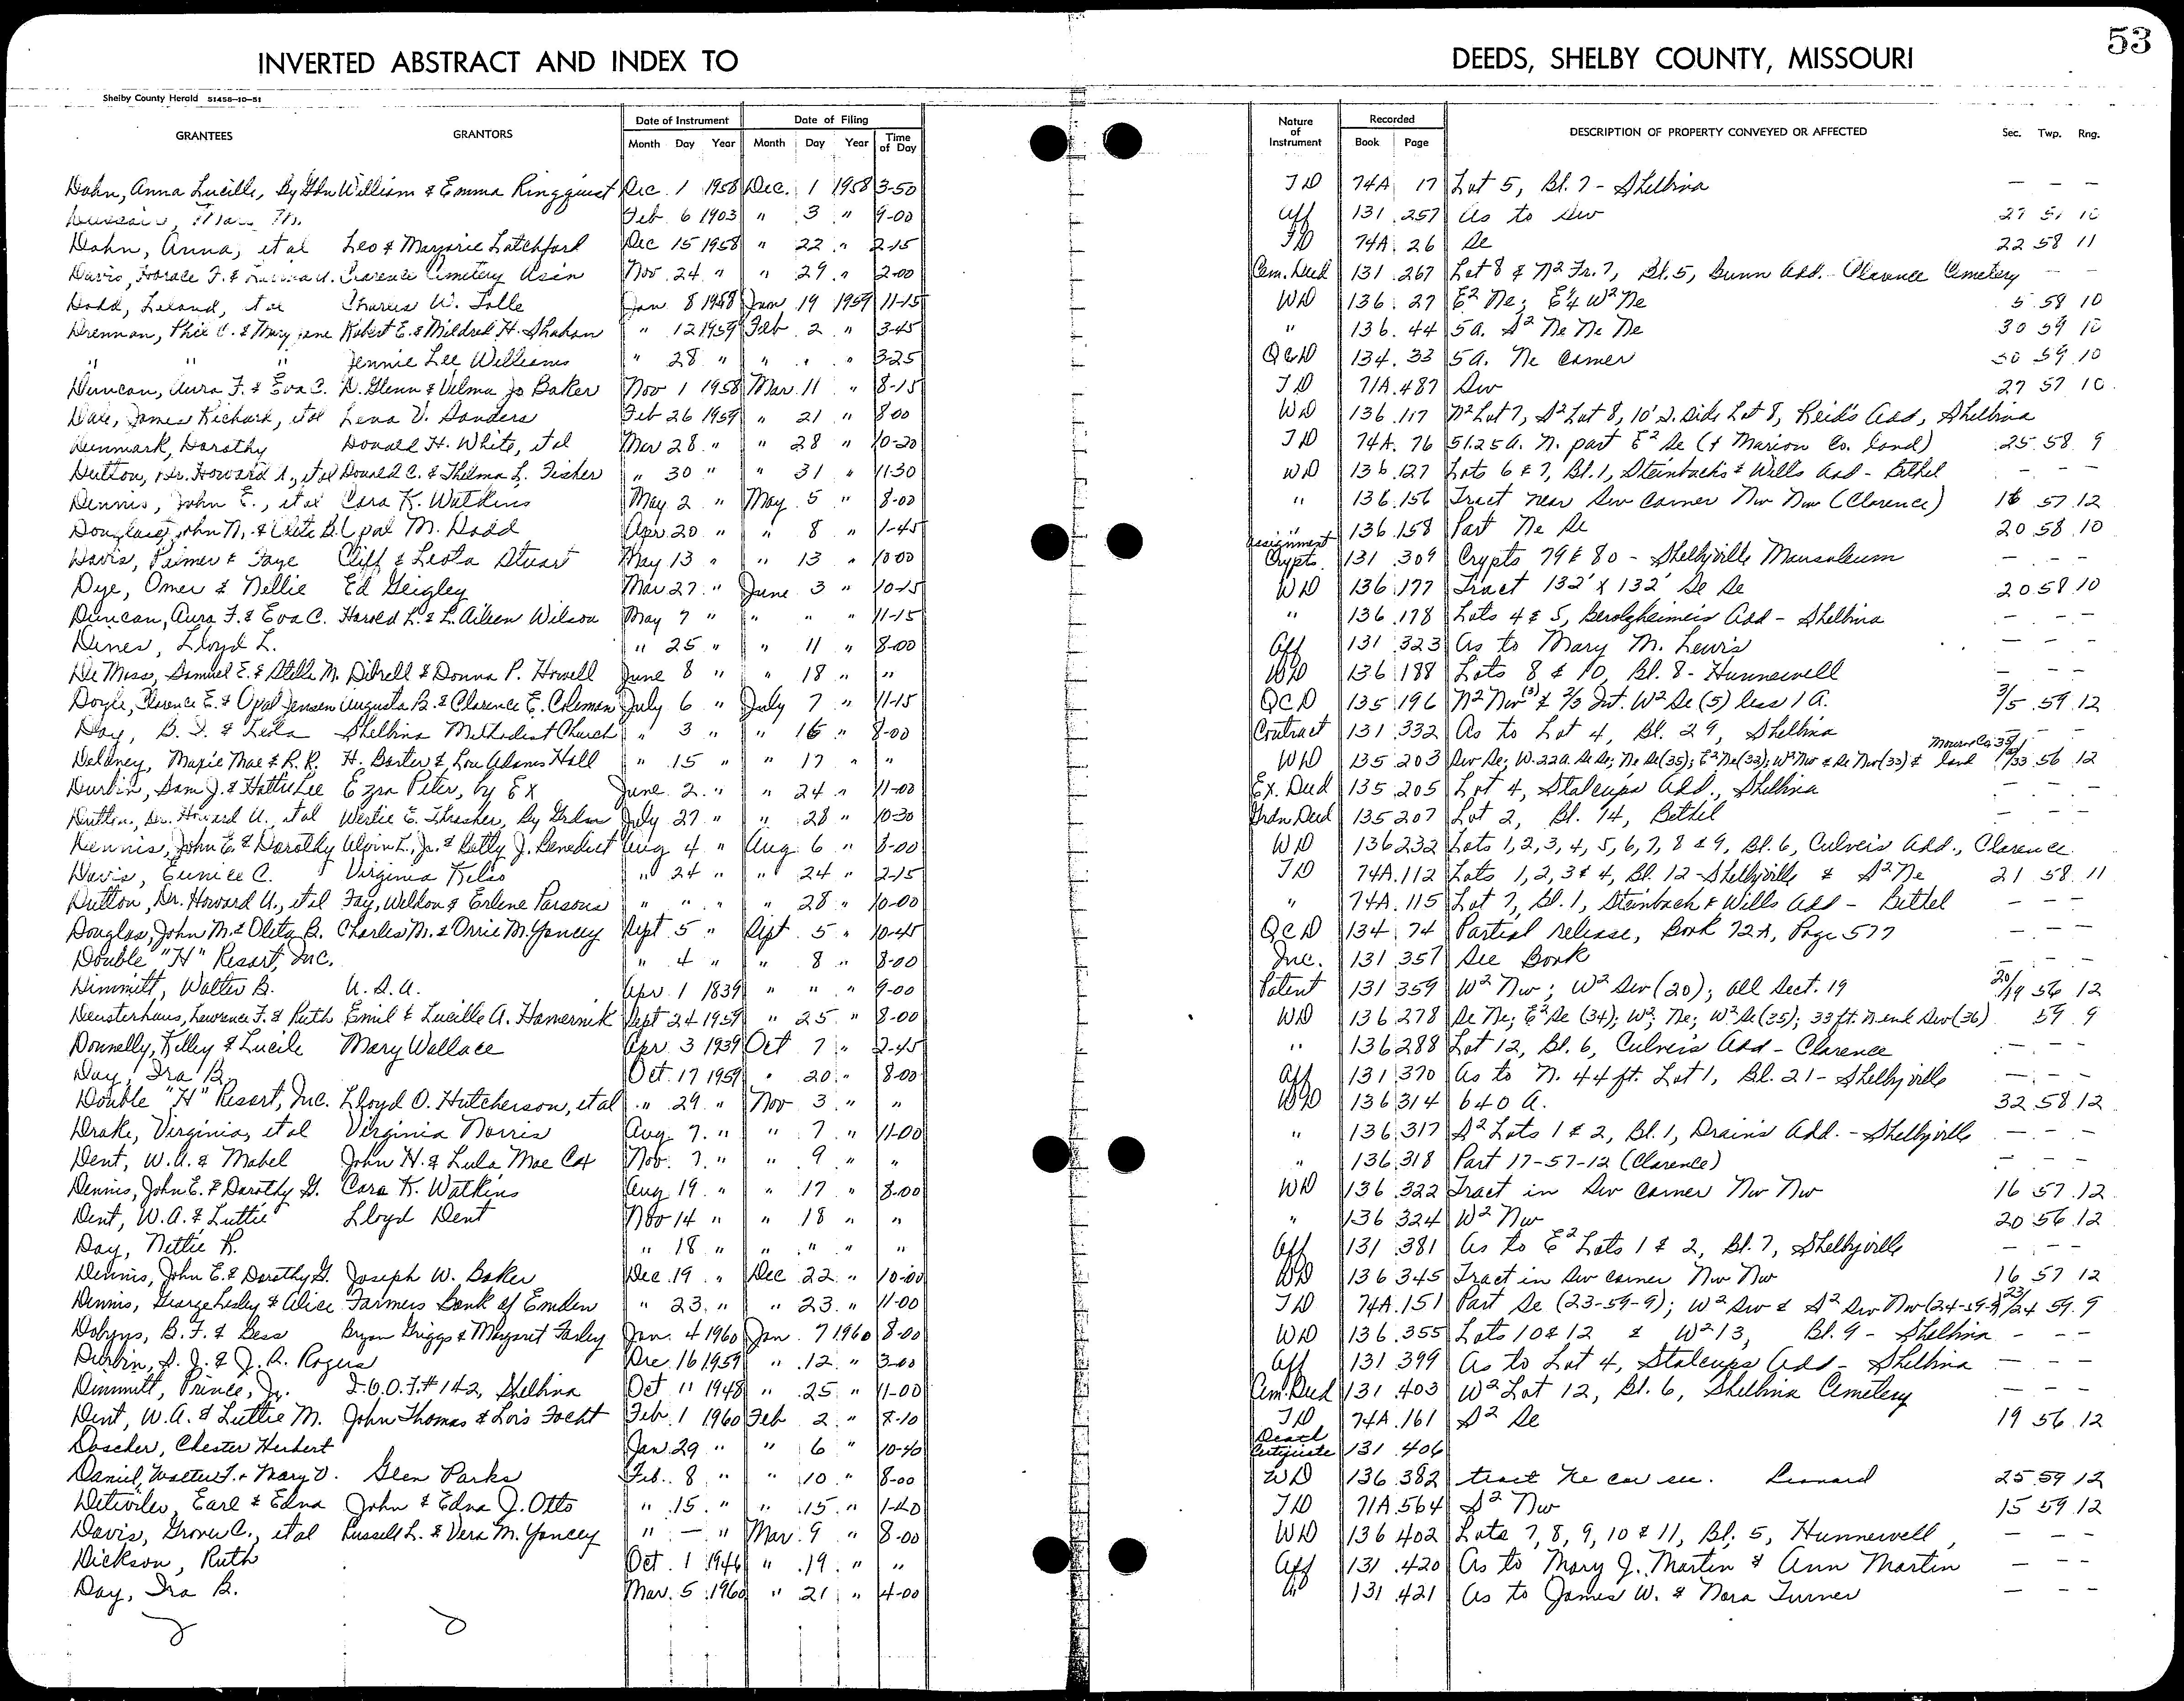 53
INVERTED ABSTRACT AND INDEX TO DEEDS, SHELBY COUNTY, MISSOURI
Shelby County Herald 51458-10-51
GRANTEES GRANTORS Date of Instrument Date of Filing Nature of Instrument Recorded DESCRIPTION OF PROPERTY CONVEYED OR AFFECTED Sec. Twp. Rng.
Month Day Year Month Day Year Time of Day Book Page
Dohn, Anna Lucille, By Gdn William & Emma Ringquist Dec. 1 1958 Dec. 1 1958 3-50 TD 74A 17 Lot 5, Bl. 7 - Shelbina - - -
Feb 6 1903 " 3 " 9-00 Aff 131 257 As to Sw 27
Dohn, Anna, et al Leo & Marjorie Latchford Dec 15 1958 " 22 " 2-15 TD 74A 26 Se 22 58 11
Davis, Horace F. & Clarence Cemetery Assn Nov. 24 " " 29 " 2-00 Cem. Deed 131 267 Lot 8 & N2 Fr. 7, Bl. 5, Gunn Add. Clarence Cemetery - -
Dodd, Leland, et al Charles W. Tolle Jan 8 1958 Jan 19 1959 11-15 WD 136 27 E2 Ne; E4 W2 Ne 5 58 10
Drennan, Phil C. & Mary Jane Robert E. & Mildred H. Shahan " 12 1959 Feb 2 " 3-45 " 136 44 5a. S2 Ne Ne Ne 30 59 10
" " " Jennie Lee Williams " 28 " " " " 3-25 QCD 134 33 5a. Ne corner 30 59 10
Duncan, Aura F. & Eva C. D. Glenn & Velma Jo Baker Nov 1 1958 Mar. 11 " 8-15 TD 71A 487 Sw 27 57 10
Dale, James Richard, et al Lena V. Sanders Feb 26 1959 " 21 " 8-00 WD 136 117 N2 Lot 7, S2 Lot 8, 10' S. Side Lot 8, Reid's Add, Shelbina
Denmark, Dorothy Donald H. White, et al Mar 28 " " 28 " 10-20 TD 74A 76 51.25a. N. part E2 Se (& Marion Co. land) 25 58 9
Dutton, Dr. Howard A., et al Donald C. & Thelma L. Fisher " 30 " " 31 " 11-30 WD 136 127 Lots 6 & 7, Bl. 1, Steinbach & Wills Add - Bethel - - -
Dennis, John E., et al Cara K. Watkins May 2 " May 5 " 8-00 " 136 156 Tract near Sw corner Nw Nw (Clarence) 16 57 12
Douglas, John M. & Oleta B. Opal M. Dodd Apr. 20 " " 8 " 1-45 " 136 158 Part Ne Se 20 58 10
Davis, Primer & Faye Cliff & Leota Stuart May 13 " " 13 " 10-00 Assignment Crypts 131 309 Crypts 79 & 80 - Shelbyville Mausoleum - - -
Dye, Omer & Nellie Ed Geigley Mar 27 " June 3 " 10-15 WD 136 177 Tract 132' x 132' Se Se 20 58 10
Duncan, Aura F. & Eva C. Harold L. & L. Aileen Wilson May 7 " " " " 11-15 " 136 178 Lots 4 & 5, Berolzheimer's Add - Shelbina - - -
Dines, Lloyd L. " 25 " " 11 " 8-00 Aff 131 323 As to Mary M. Lewis - - -
De Moss, Samuel E. & Stella M. Dibrell & Donna P. Howell June 8 " " 18 " " WD 136 188 Lots 8 & 10, Bl. 8 - Hunnewell - - -
Doyle, Clarence E. & Opal Jensen Augusta B. & Clarence E. Coleman July 6 " July 7 " 11-15 QCD 135 196 N2 Nw (3) & 2/3 Int. W2 Se (5) less 1 A. 3/5 59 12
Day, B. I. & Leola Shelbina Methodist Church " 3 " " 16 " 8-00 Contract 131 332 As to Lot 4, Bl. 29, Shelbina - -
Delaney, Maxie Mae & R. R. H. Baxter & Lou Adams Hall " 15 " " 17 " " WD 135 203 Sw Se; W. 22a. Se Se; Ne Se (35); E2 Ne (32); W2 Nw & Se Nw (33) & Monroe Co. land 56 12
Durbin, Sam J. & Hattie Lee Ezra Peter, by Ex June 2 " " 24 " 11-00 Ex. Deed 135 205 Lot 4, Stalcup's Add., Shelbina - - -
Dutton, Dr. Howard A., et al Wertie E. Thrasher, By Grdn July 27 " " 28 " 10-30 Grdn Deed 135 207 Lot 2, Bl. 14, Bethel - - -
Dennis, John E. & Dorothy Alvin L., Jr. & Betty J. Benedict Aug 4 " Aug 6 " 8-00 WD 136 232 Lots 1, 2, 3, 4, 5, 6, 7, 8 & 9, Bl. 6, Culver's Add., Clarence
Davis, Eunice C. Virginia Kelso " 24 " " 24 " 2-15 TD 74A 112 Lots 1, 2, 3 & 4, Bl. 12 - Shelbyville & S2 Ne 21 58 11
Dutton, Dr. Howard A., et al Fay, Weldon & Erlene Parsons " " " " 28 " 10-00 " 74A 115 Lot 7, Bl. 1, Steinbach & Wills Add - Bethel - - -
Douglas, John M. & Oleta B. Charles M. & Orrie M. Yancey Sept 5 " Sept 5 " 10-45 QCD 134 74 Partial release, Book 72A, Page 577 - - -
Double "H" Resort, Inc. " 4 " " 8 " 8-00 Inc. 131 357 See Book - - -
Dimmitt, Walter B. U. S. A. Apr. 1 1839 " " " 9-00 Patent 131 359 W2 Nw; W2 Sw (20); all Sect. 19 20/19 56 12
Deusterhaus, Lawrence F. & Ruth Emil & Lucille A. Hamernik Sept 24 1959 " 25 " 8-00 WD 136 278 Se Ne; E2 Se (34); W2; Ne; W2 Se (35); 33 ft. N. end Sw (36) 59 9
Donnelly, Kelley & Lucile Mary Wallace Apr 3 1939 Oct 7 " 2-45 " 136 288 Lot 12, Bl. 6, Culver's Add - Clarence - - -
Day, Ira B. Oct. 17 1959 " 20 " 8-00 Aff 131 370 As to N. 44 ft. Lot 1, Bl. 21 - Shelbyville - - -
Double "H" Resort, Inc. Lloyd O. Hutcherson, et al " 29 " Nov 3 " " WD 136 314 640 A. 32 58 12
Drake, Virginia, et al Virginia Norris Aug 7 " " 7 " 11-00 " 136 317 S2 Lots 1 & 2, Bl. 1, Drain's Add. - Shelbyville - - -
Dent, W. A. & Mabel John H. & Lula Mae Cox Nov. 7 " " 9 " " " 136 318 Part 17-57-12 (Clarence) - - -
Dennis, John E. & Dorothy G. Cara K. Watkins Aug 19 " " 17 " 8-00 WD 136 322 Tract in Sw corner Nw Nw 16 57 12
Dent, W. A. & Luttie Lloyd Dent Nov 14 " " 18 " " " 136 324 W2 Nw 20 56 12
Day, Nettie R. " 18 " " " " " Aff 131 381 As to E2 Lots 1 & 2, Bl. 7, Shelbyville - - -
Dennis, John E. & Dorothy G. Joseph W. Baker Dec. 19 " Dec 22 " 10-00 WD 136 345 Tract in Sw corner Nw Nw 16 57 12
Dennis, George Lesley & Alice Farmers Bank of Emden " 23 " " 23 " 11-00 TD 74A 151 Part Se (23-59-9); W2 Sw & S2 Sw Nw (24-59-9) 23/24 59 9
Dobyns, B. F. & Bess Bryan Griggs & Margaret Farley Jan. 4 1960 Jan. 7 1960 8-00 WD 136 355 Lots 10 & 12 & W2 13, Bl. 9 - Shelbina - - -
Durbin, S. J. & J. R. Rogers Dec. 16 1959 " 12 " 3-00 Aff 131 399 As to Lot 4, Stalcups Add - Shelbina - - -
Dimmitt, Prince, Jr. I. O. O. F. # 142, Shelbina Oct 11 1948 " 25 " 11-00 Cem. Deed 131 403 W2 Lot 12, Bl. 6, Shelbina Cemetery - - -
Dent, W. A. & Luttie M. John Thomas & Lois Focht Feb. 1 1960 Feb 2 " 8-10 TD 74A 161 S2 Se 19 56 12
Doscher, Chester Herbert Jan. 29 " " 6 " 10-40 Death Certificate 131 406
Daniel, Walter F. & Mary V. Glen Parks Feb. 8 " " 10 " 8-00 WD 136 382 tract Ne cor sec. Leonard 25 59 12
Detweiler, Earl & Edna John & Edna J. Otto " 15 " " 15 " 1-40 TD 71A 564 S2 Nw 15 59 12
Davis, Grover C., et al Russell L. & Vera M. Yancey " - " Mar. 9 " 8-00 WD 136 402 Lots 7, 8, 9, 10 & 11, Bl. 5, Hunnewell - - -
Dickson, Ruth Oct. 1 1946 " 19 " " Aff 131 420 As to Mary J. Martin & Ann Martin - - -
Day, Ira B. Mar. 5 1960 " 21 " 4-00 " 131 421 As to James W. & Nora Turner - - -